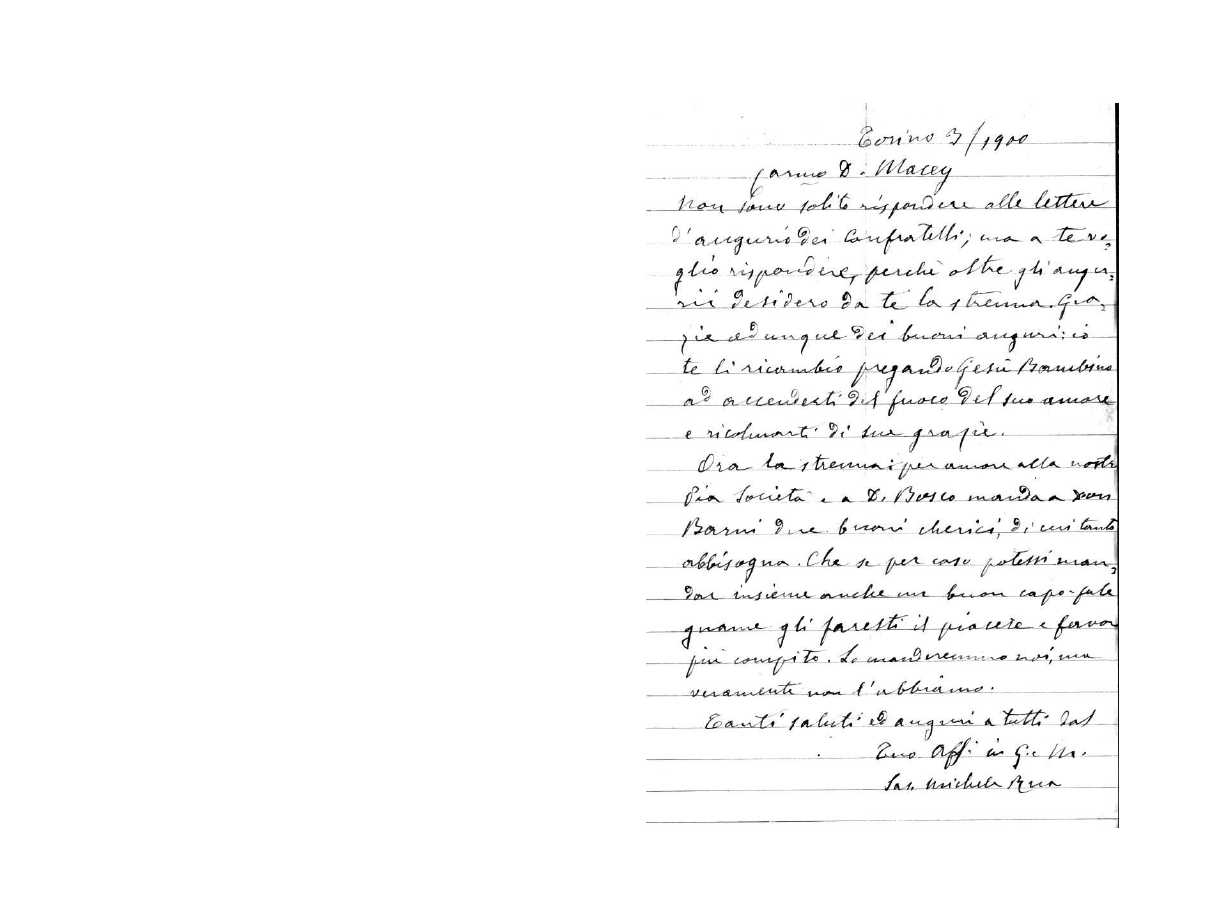 Torino 3/1900
Carmo D. Macey
Non sono solito rispondere alle lettere
d'augurio dei Confratelli; ma a te vo=
glio rispondere, perchè oltre gli augu=
rii desidero da te la strenna. Gra=
zie adunque dei buoni auguri: io
te li ricambio pregando Gesù Bambino
ad accenderti del fuoco del suo amore
e ricolmarti di sue grazie.
Ora la strenna: per amore alla nostr
Pia Società e a D. Bosco manda a Don
Barni due buoni cherici, di cui tanto
abbisogna. Che se per caso potessi man=
dar insieme anche un buon capo-fale
gname gli faresti il piacere e favor
più compito. Lo manderemmo noi, ma
veramente non l'abbiamo.
Tanti saluti ed auguri a tutti dal
Tuo Aff. in G. e M.
Sac. Michele Rua